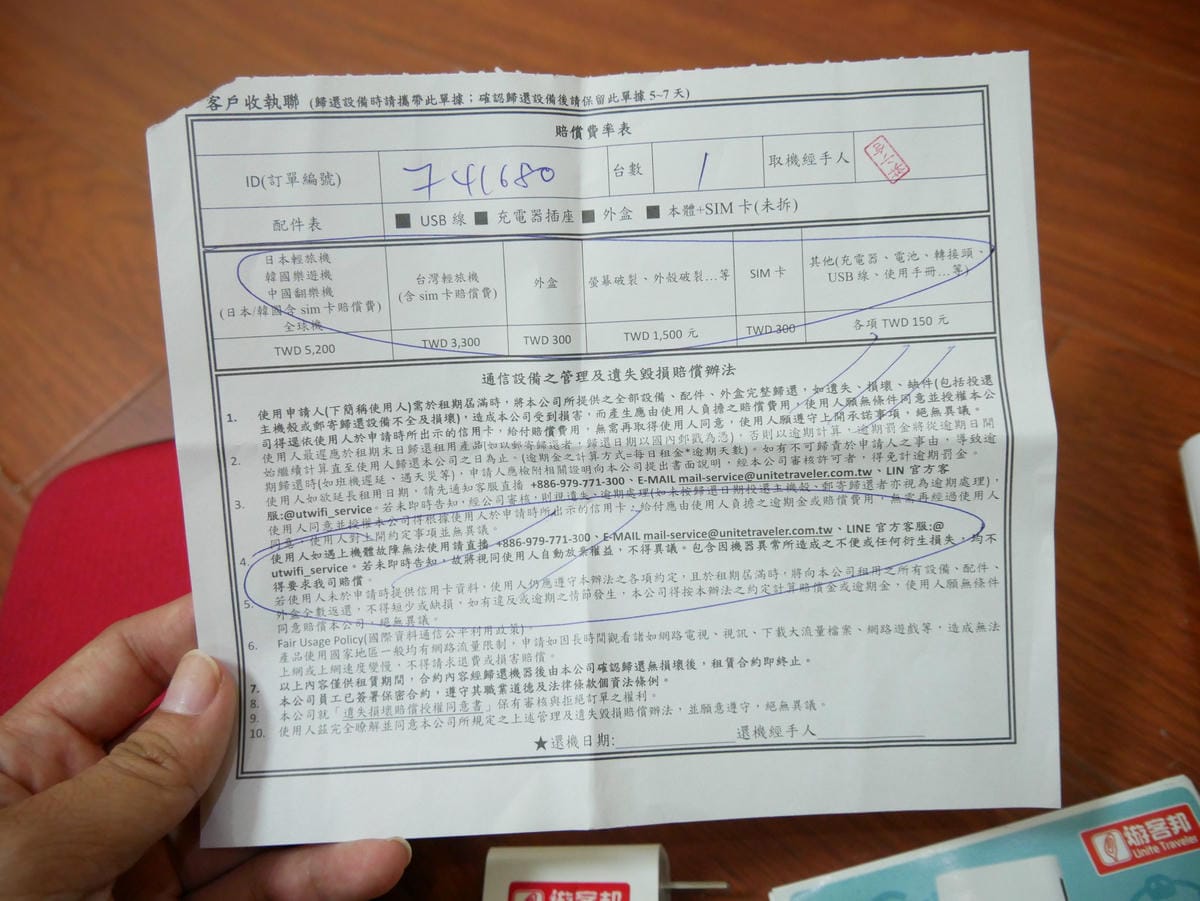 客戶收執聯 (歸還設備時請攜帶此單據；確認歸還設備後請保留此單據 5~7 天)
賠償費率表
ID(訂單編號) 741680 台數 1 取機經手人
配件表 ■ USB 線 ■ 充電器插座 ■ 外盒 ■ 本體+SIM 卡(未拆)
日本輕旅機
韓國樂遊機
中國翻樂機
(日本/韓國含 sim 卡賠償費)
全球機
台灣輕旅機
(含 sim 卡賠償費)
外盒
螢幕破裂、外殼破裂…等
SIM 卡
其他(充電器、電池、轉接頭、
USB 線、使用手冊…等)
TWD 5,200 TWD 3,300 TWD 300 TWD 1,500 元 TWD 300 各項 TWD 150 元
通信設備之管理及遺失毀損賠償辦法
1. 使用申請人(下簡稱使用人)需於租期屆滿時，將本公司所提供之全部設備、配件、外盒完整歸還，如遺失、損壞、缺件(包括投還
主機殼或郵寄歸還設備不全及損壞)，造成本公司受到損害，而產生應由使用人負擔之賠償費用，使用人願無條件同意並授權本公
司得逕依使用人於申請時所出示的信用卡，給付賠償費用，無需再取得使用人同意，使用人願遵守上開承諾事項，絕無異議。
2. 使用人最遲應於租期末日歸還租用產品(如以郵寄歸還者，歸還日期以國內郵戳為憑)，否則以逾期計算，逾期罰金將從逾期日開
始繼續計算直至使用人歸還本公司之日為止。(逾期金之計算方式=每日租金*逾期天數)。如有不可歸責於申請人之事由，導致逾
期歸還時(如班機遲延、遇天災等)，申請人應檢附相關證明向本公司提出書面說明，經本公司審核許可者，得免計逾期罰金。
3. 使用人如欲延長租用日期，請先通知客服直播 +886-979-771-300、E-MAIL mail-service@unitetraveler.com.tw、LIN 官方客
服:@utwifi_service。若未即時告知，經公司審核，則視遺失、逾期處理(如未按歸還日期投還主機殼、郵寄歸還者亦視為逾期處理)，
使用人同意並授權本公司得根據使用人於申請時所出示的信用卡，給付應由使用人負擔之逾期金或賠償費用，無需再經過使用人
同意，使用人對上開約定事項並無異議。
4. 使用人如遇上機體故障無法使用請直播 +886-979-771-300、E-MAIL mail-service@unitetraveler.com.tw、LINE 官方客服:@
utwifi_service。若未即時告知，故將視同使用人自動放棄權益，不得異議。包含因機器異常所造成之不便或任何衍生損失，均不
得要求我司賠償。
5. 若使用人未於申請時提供信用卡資料，使用人仍應遵守本辦法之各項約定，且於租期屆滿時，將向本公司租用之所有設備、配件、
外盒全數返還，不得短少或缺損，如有違反或逾期之情節發生，本公司得按本辦法之約定計算賠償金或逾期金，使用人願無條件
同意賠償本公司，絕無異議。
6. Fair Usage Policy(國際資料通信公平利用政策)。
產品使用國家地區一般均有網路流量限制，申請如因長時間觀看諸如網路電視、視訊、下載大流量檔案、網路遊戲等，造成無法
上網或上網速度變慢，不得請求退費或損害賠償。
7. 以上內容僅供租賃期間，合約內容經歸還機器後由本公司確認歸還無損壞後，租賃合約即終止。
8. 本公司員工已簽署保密合約，遵守其職業道德及法律條款個資法條例。
9. 本公司就「遺失損壞賠償授權同意書」保有審核與拒絕訂單之權利。
10. 使用人茲完全瞭解並同意本公司所規定之上述管理及遺失毀損賠償辦法，並願意遵守，絕無異議。
★還機日期: 還機經手人
遊客邦
Unite Traveler
遊客邦